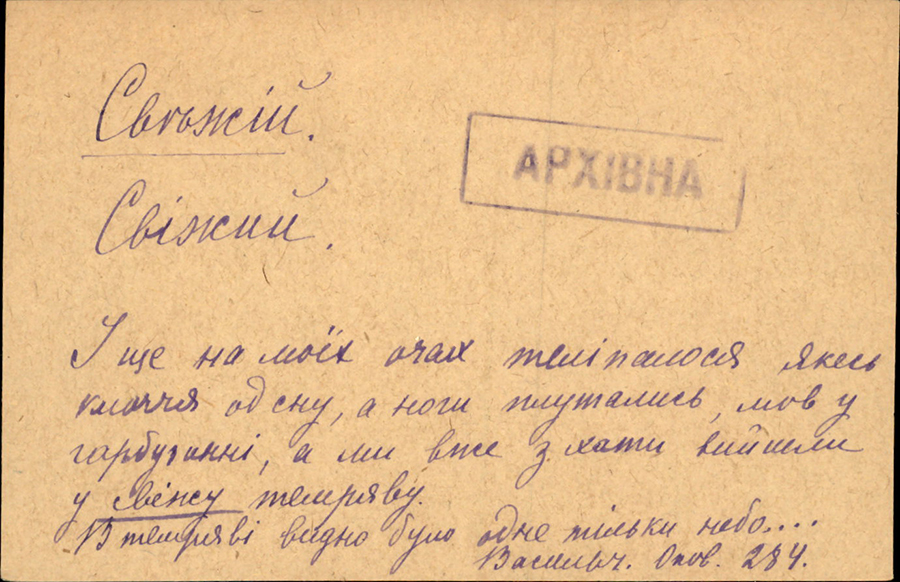 Свѣжій.
АРХІВНА
Свіжий.
І ще на моїх очах теліпалося якесь
клоччя од сну, а ноги плутались, мов у
гарбузинні, а ми вже з хати вийшли
у свіжу темряву.
В темряві видно було одне тільки небо....
Васильч. Опов. 284.